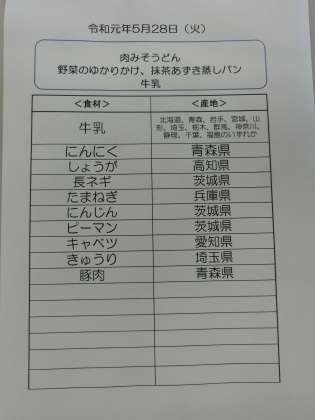 令和元年5月28日（火）
肉みそうどん
野菜のゆかりかけ、抹茶あずき蒸しパン
牛乳
＜食材＞ ＜産地＞
牛乳 北海道、青森、岩手、宮城、山
形、埼玉、栃木、群馬、神奈川、
静岡、千葉、福島のいずれか
にんにく 青森県
しょうが 高知県
長ネギ 茨城県
たまねぎ 兵庫県
にんじん 茨城県
ピーマン 茨城県
キャベツ 愛知県
きゅうり 埼玉県
豚肉 青森県